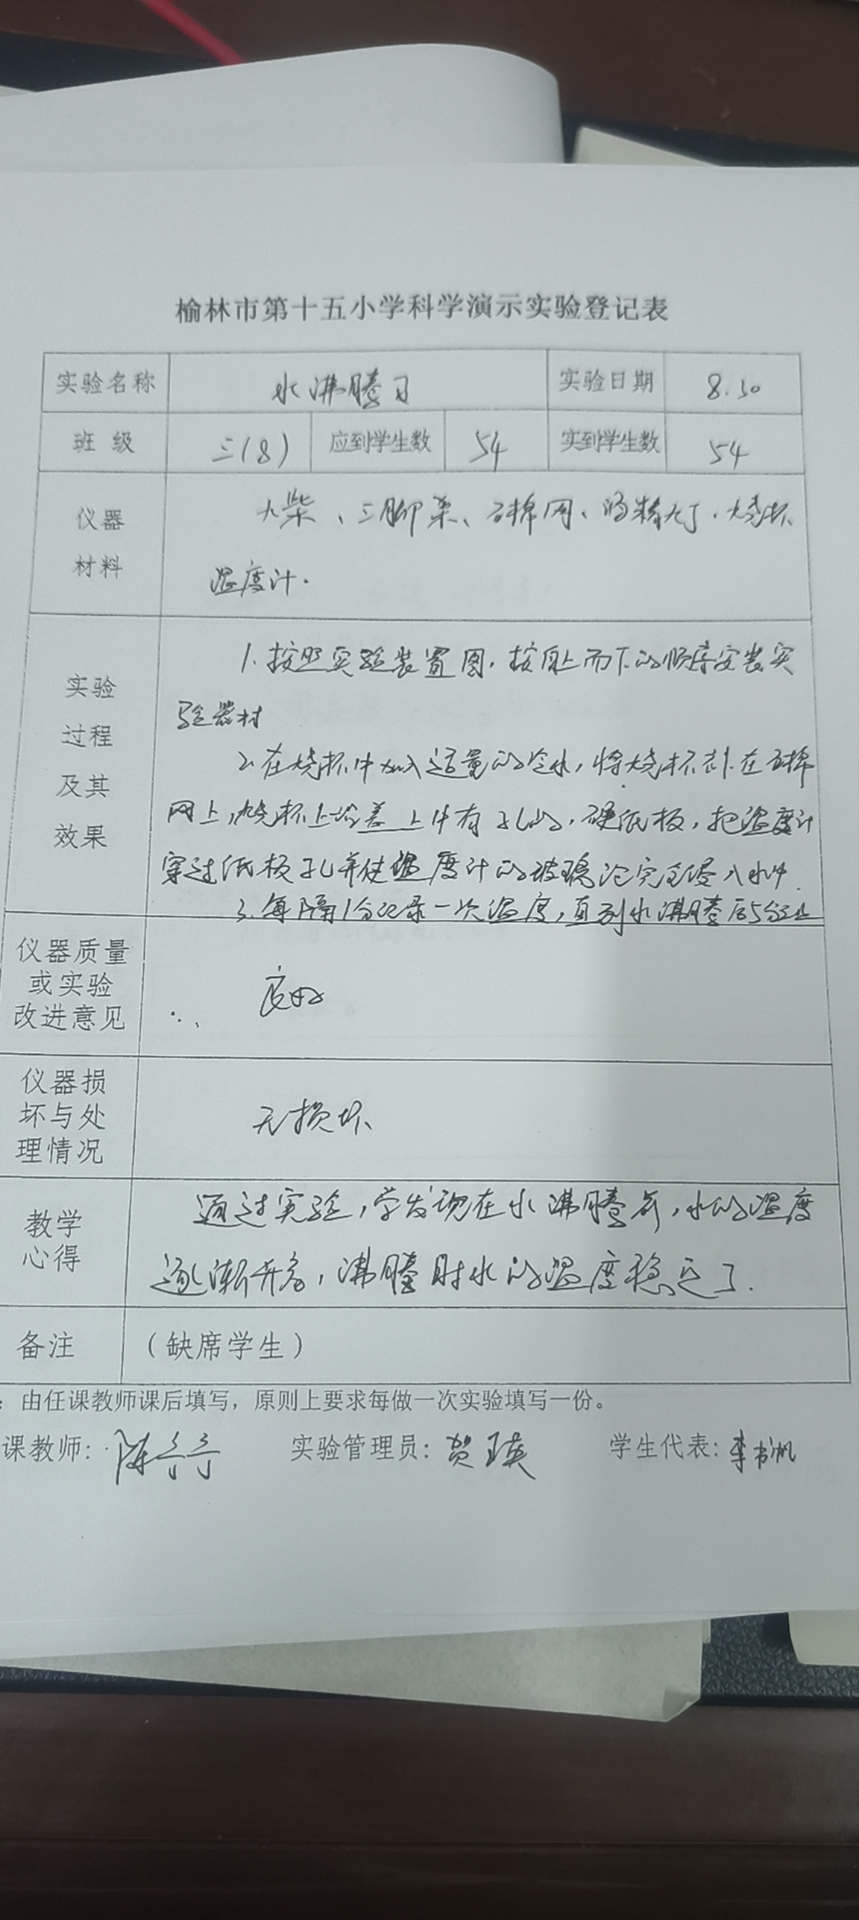 榆林市第十五小学科学演示实验登记表
实验名称 水沸腾了 实验日期 8.30
班 级 三(8) 应到学生数 54 实到学生数 54
仪器 火柴、三脚架、石棉网、酒精灯、烧杯
材料 温度计.
实验 1.按照实验装置图,按自上而下的顺序安装实
过程 验器材
及其 2.在烧杯中加入适量的冷水,将烧杯放在石棉
效果 网上,烧杯上盖上中有孔的,硬纸板,把温度计
穿过纸板孔并使温度计的玻璃泡完全浸入水中.
3.每隔1分记录一次温度,直到水沸腾后5分止
仪器质量
或实验 良好
改进意见
仪器损
坏与处 无损坏
理情况
教学 通过实验,学发现在水沸腾前,水的温度
心得 逐渐升高,沸腾时水的温度稳定了.
备注 (缺席学生)
:由任课教师课后填写,原则上要求每做一次实验填写一份。
课教师: 陈 实验管理员: 贺瑛 学生代表: 李书帆